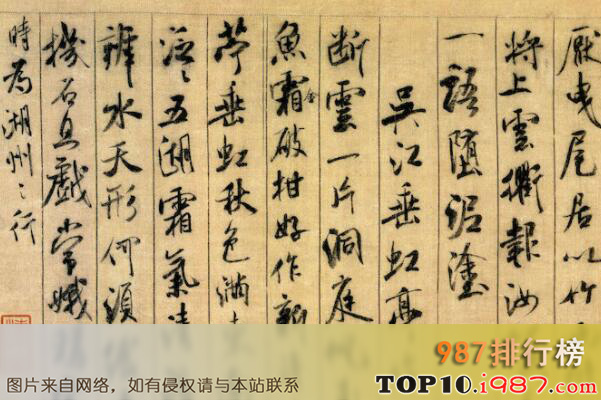 厭曳尾居以竹
將上雲衢報汝
一語墮泥塗
吳江垂虹亭
斷雲一片洞庭
魚霜金破柑好作新
苧垂虹秋色滿
泛〻五湖霜氣清
辨水天形何須
機石且戲常娥
時為湖州之行
987排行榜
图片来自网络，如有侵权请与本站联系
TOP10.i987.com